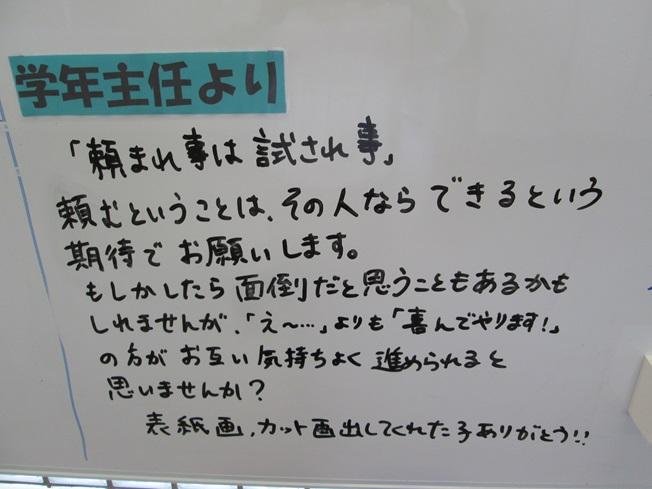 学年主任より
「頼まれ事は試され事」
頼むということは、その人ならできるという
期待でお願いします。
もしかしたら面倒だと思うこともあるかも
しれませんが、「え〜…」よりも「喜んでやります!」
の方がお互い気持ちよく進められると
思いませんか?
表紙画、カット画出してくれた子ありがとう!!